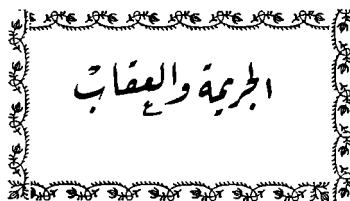 الجريمة والعقاب